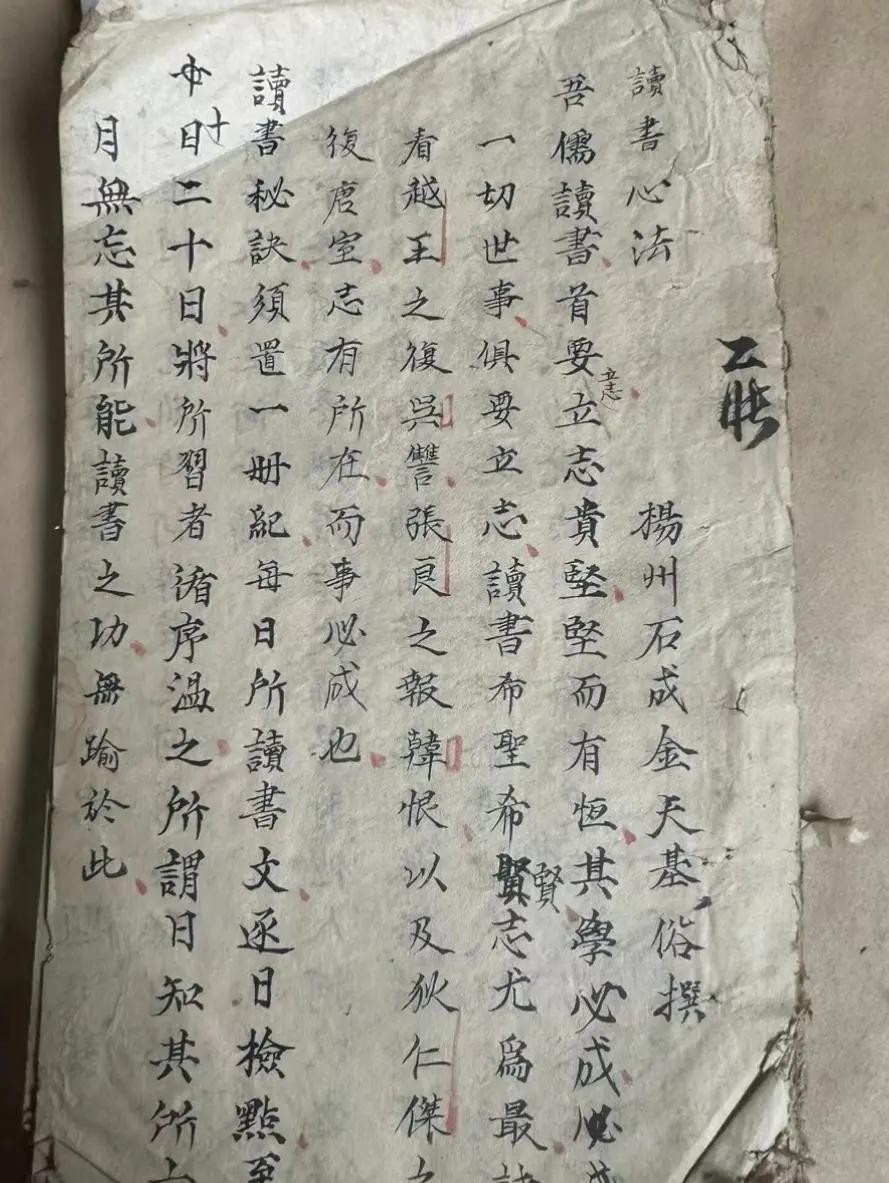 讀書心法
楊州石成金天基俗撰
吾儒讀書首要立志貴堅堅而有恆其學必成
立志
一切世事俱要立志讀書希聖希賢志尤為最
賢
看越王之復吳讐張良之報韓恨以及狄仁傑之
復唐室志有所在而事必成也
讀書秘訣須置一冊紀每日所讀書文逐日檢點至
十日二十日將所習者循序溫之所謂日知其所
十
月無忘其所能讀書之功無踰於此